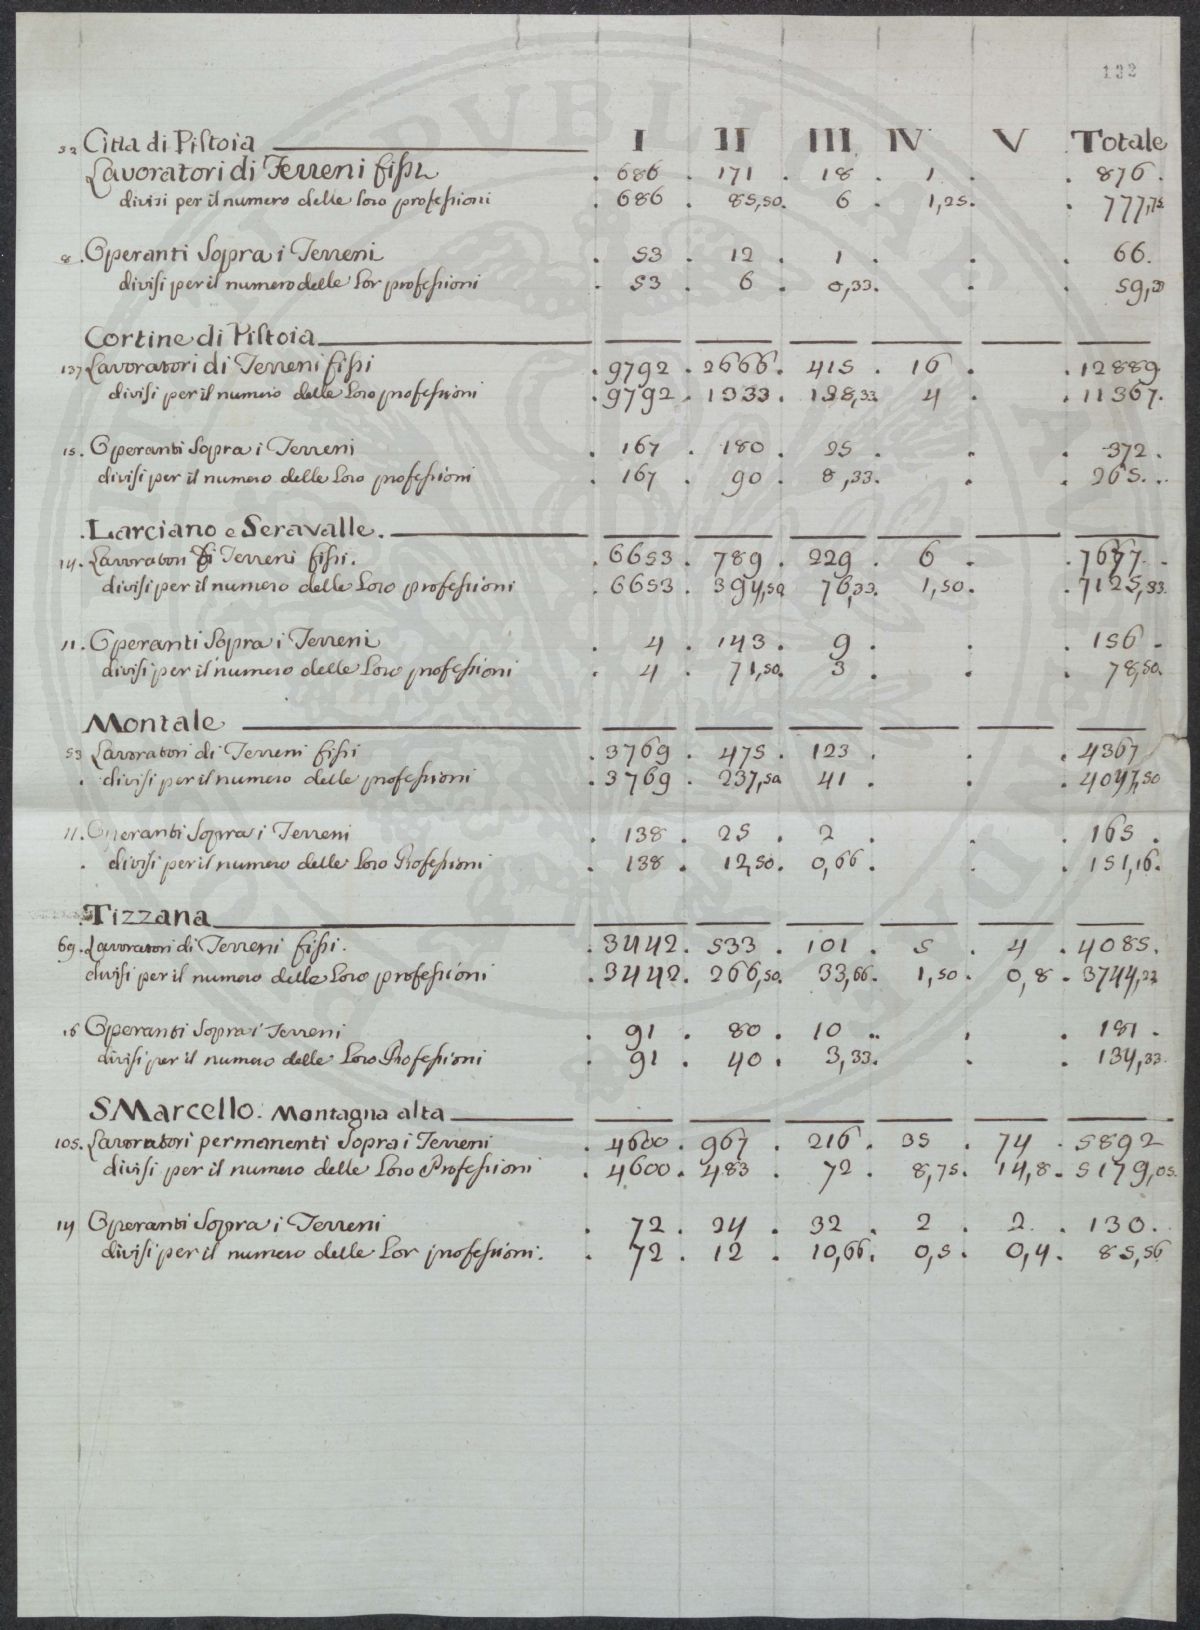 132
52 Citta di Pistoia I II III IV V Totale
Lavoratori di Terreni fissi . 686 . 171 . 18 . 1 . . 876 .
divisi per il numero delle loro professioni . 686 . 85,50. 6 . 1,25. . 777,75
8 . Operanti Sopra i Terreni . 53 . 12 . 1 . . . 66.
divisi per il numero delle Lor professioni . 53 . 6 . 0,33. . . 59,33
Cortine di Pistoia
137 Lavoratori di Terreni fissi . 9792 . 2666 . 415 . 16 . . 12889
divisi per il numero delle Loro professioni . 9792 . 1333 . 138,33. 4 . . 11367.
15. Operanti Sopra i Terreni . 167 . 180 . 25 . . . 372 .
divisi per il numero delle Loro professioni . 167 . 90 . 8,33. . . 265. .
. Larciano e Seravalle.
14. Lavoratori di Terreni fissi. . 6653 . 789 . 229 . 6 . . 7677 .
divisi per il numero delle Loro professioni . 6653 . 394,50 76,33. 1,50. . 7125,33.
11. Operanti Sopra i Terreni . 4 . 143 . 9 . . . 156 .
divisi per il numero delle Loro professioni . 4 . 71,50. 3 . . 78,50.
Montale
53 Lavoratori di Terreni fissi . 3769 . 475 . 123 . . . 4367
. divisi per il numero delle professioni . 3769 . 237,50 41 . . . 4047,50
11. Operanti Sopra i Terreni . 138 . 25 . 2 . . . 165 .
. divisi per il numero delle Loro Professioni . 138 . 12,50. 0,66. . . 151,16.
. Tizzana
69. Lavoratori di Terreni fissi. . 3442. 533 . 101 . 5 . 4 . 4085.
divisi per il numero delle Loro professioni . 3442. 266,50. 33,66. 1,50. 0,8 . 3744,22
16 Operanti Sopra i Terreni . 91 . 80 . 10 . . . 181 .
divisi per il numero delle Loro Professioni . 91 . 40 . 3,33. . . 134,33.
S Marcello. Montagna alta
105. Lavoratori permanenti Sopra i Terreni . 4600 . 967 . 216 . 35 . 74 . 5892
divisi per il numero delle Loro Professioni . 4600 . 483 . 72 . 8,75. 14,8. 5179,05.
14 Operanti Sopra i Terreni . 72 . 24 . 32 . 2 . 2 . 130 .
divisi per il numero delle Lor professioni. . 72 . 12 . 10,66. 0,5. 0,4. 85,56